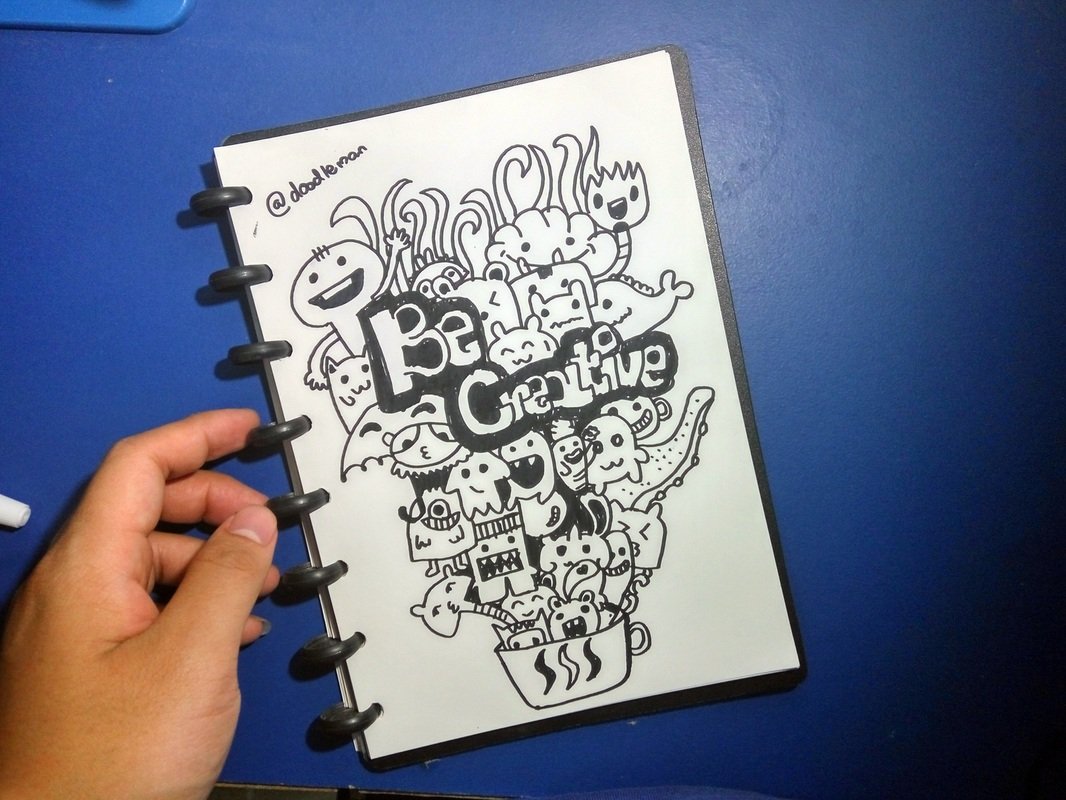 @doodleman
Be
Creative